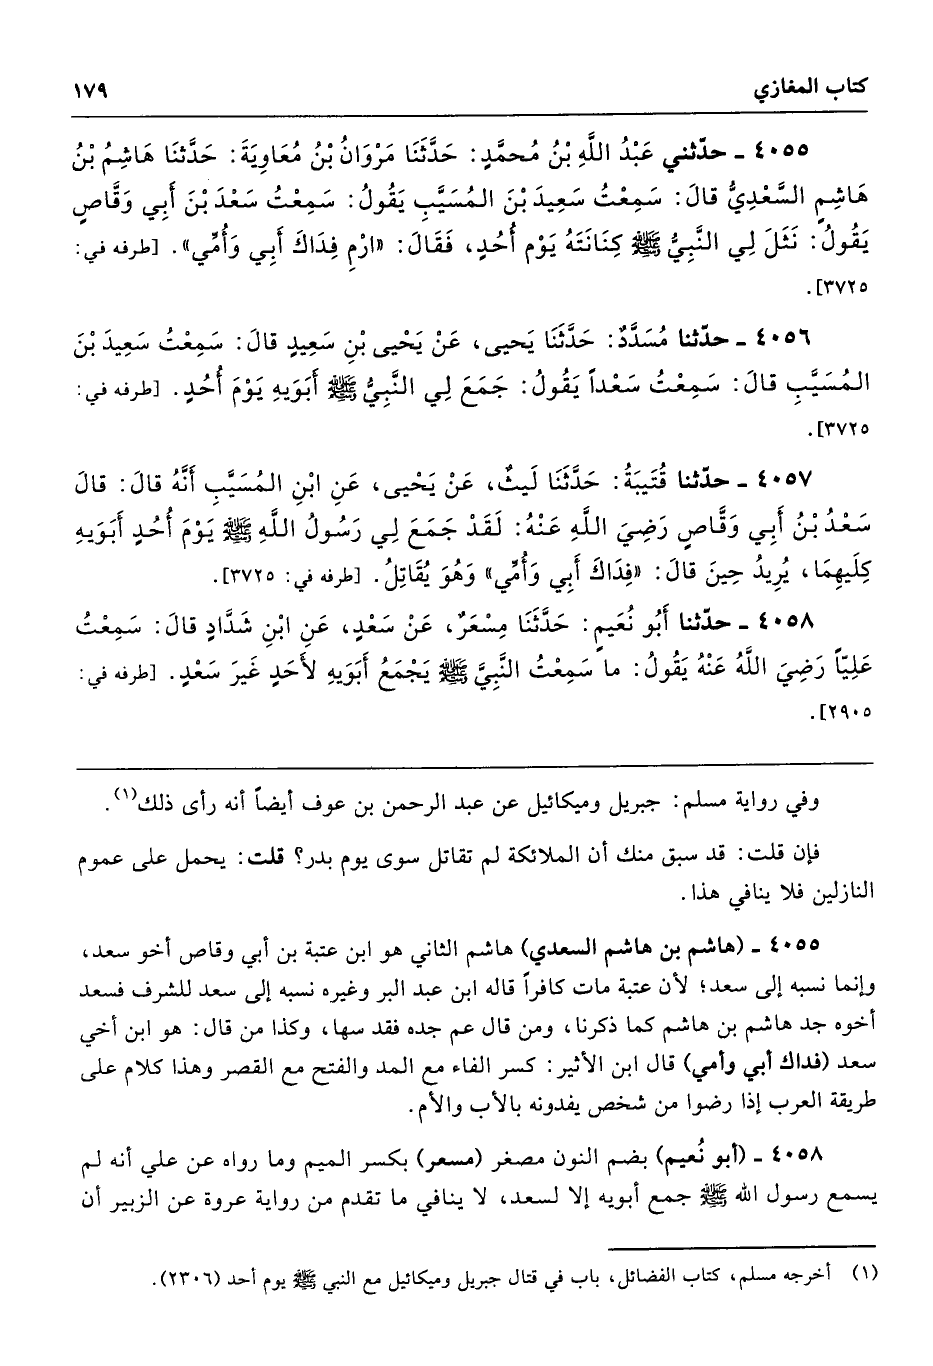 كتاب المغازي ١٧٩
٤٠٥٥ ـ حدّثني عَبْدُ اللَّهِ بْنُ مُحمَّدٍ: حَدَّثَنَا مَرْوَانُ بْنُ مُعَاوِيَةَ: حَدَّثَنَا هَاشِمُ بْنُ
هَاشِمٍ السَّعْدِيُّ قالَ: سَمِعْتُ سَعِيدَ بْنَ المُسَيَّبِ يَقُولُ: سَمِعْتُ سَعْدَ بْنَ أَبِي وَقَّاصٍ
يَقُولُ: نَثَلَ لِي النَّبِيُّ ﷺ كِنَانَتَهُ يَوْمَ أُحُدٍ، فَقَالَ: «ارْمِ فِدَاكَ أَبِي وَأُمِّي». [طرفه في:
٣٧٢٥].
٤٠٥٦ ـ حدّثنا مُسَدَّدٌ: حَدَّثَنَا يَحيى، عَنْ يَحْيى بْنِ سَعِيدٍ قالَ: سَمِعْتُ سَعِيدَ بْنَ
المُسَيَّبِ قالَ: سَمِعْتُ سَعْداً يَقُولُ: جَمَعَ لِي النَّبِيُّ ﷺ أَبَوَيهِ يَوْمَ أُحُدٍ. [طرفه في:
٣٧٢٥].
٤٠٥٧ ـ حدّثنا قُتَيبَةُ: حَدَّثَنَا لَيثٌ، عَنْ يَحْيى، عَنِ ابْنِ المُسَيَّبِ أَنَّهُ قالَ: قالَ
سَعْدُ بْنُ أَبِي وَقَّاصٍ رَضِيَ اللَّهِ عَنْهُ: لَقَدْ جَمَعَ لِي رَسُولُ اللَّهِ ﷺ يَوْمَ أُحُدٍ أَبَوَيهِ
كِلَيهِمَا، يُرِيدُ حِينَ قالَ: «فِدَاكَ أَبِي وَأُمِّي» وَهُوَ يُقَاتِلُ. [طرفه في: ٣٧٢٥].
٤٠٥٨ ـ حدّثنا أَبُو نُعَيمٍ: حَدَّثَنَا مِسْعَرٌ، عَنْ سَعْدٍ، عَنِ ابْنِ شَدَّادٍ قالَ: سَمِعْتُ
عَلِيّاً رَضِيَ اللَّهُ عَنْهُ يَقُولُ: ما سَمِعْتُ النَّبِيَّ ﷺ يَجْمَعُ أَبَوَيهِ لأَحَدٍ غَيرَ سَعْدٍ. [طرفه في:
٢٩٠٥].
وفي رواية مسلم: جبريل وميكائيل عن عبد الرحمن بن عوف أيضاً أنه رأى ذلك(١).
فإن قلت: قد سبق منك أن الملائكة لم تقاتل سوى يوم بدر؟ قلت: يحمل على عموم
النازلين فلا ينافي هذا.
٤٠٥٥ ـ (هاشم بن هاشم السعدي) هاشم الثاني هو ابن عتبة بن أبي وقاص أخو سعد،
وإنما نسبه إلى سعد؛ لأن عتبة مات كافراً قاله ابن عبد البر وغيره نسبه إلى سعد للشرف فسعد
أخوه جد هاشم بن هاشم كما ذكرنا، ومن قال عم جده فقد سها، وكذا من قال: هو ابن أخي
سعد (فداك أبي وأمي) قال ابن الأثير: كسر الفاء مع المد والفتح مع القصر وهذا كلام على
طريقة العرب إذا رضوا من شخص يفدونه بالأب والأم.
٤٠٥٨ ـ (أبو نُعيم) بضم النون مصغر (مسعر) بكسر الميم وما رواه عن علي أنه لم
يسمع رسول الله ﷺ جمع أبويه إلا لسعد، لا ينافي ما تقدم من رواية عروة عن الزبير أن
(١) أخرجه مسلم، كتاب الفضائل، باب في قتال جبريل وميكائيل مع النبي ﷺ يوم أحد (٢٣٠٦).